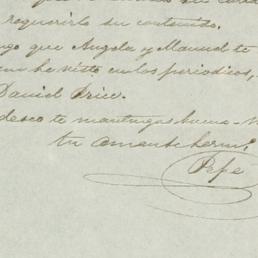 requerirlo su contenido.
que Angela y Manuel te
he visto en los periodicos,
Daniel Price.
deseo te mantengas bueno
tu amante herm.º
Pepe